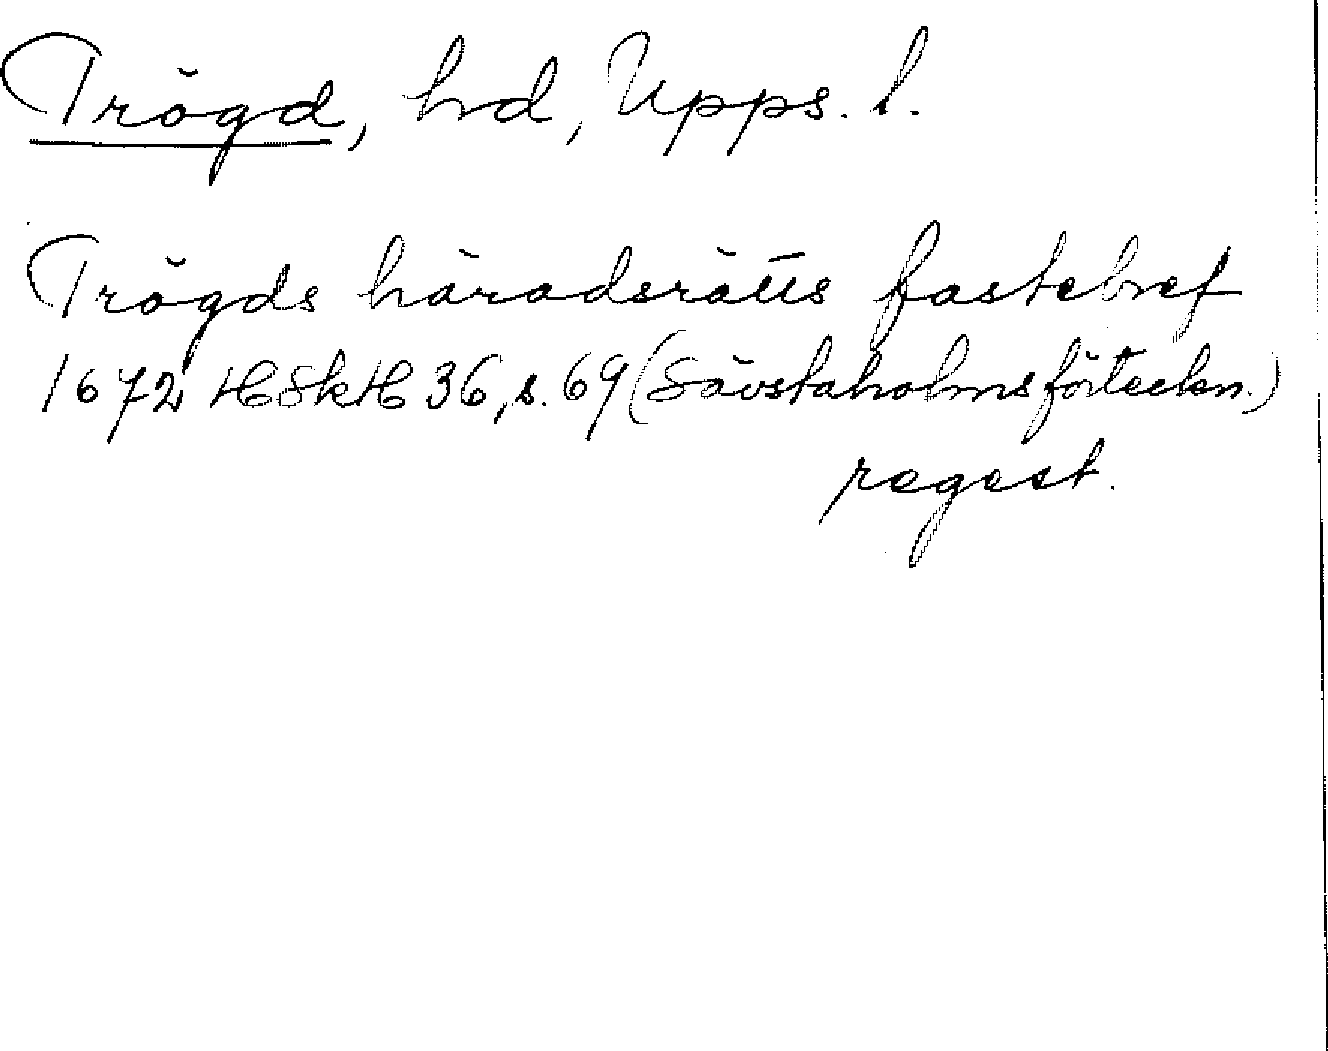 Trögd, hd, Upps. l.
Trögds häradsrätts fastebref
1672 HSkH 36, s. 69 (Sävstaholmsförteckn.)
regest.